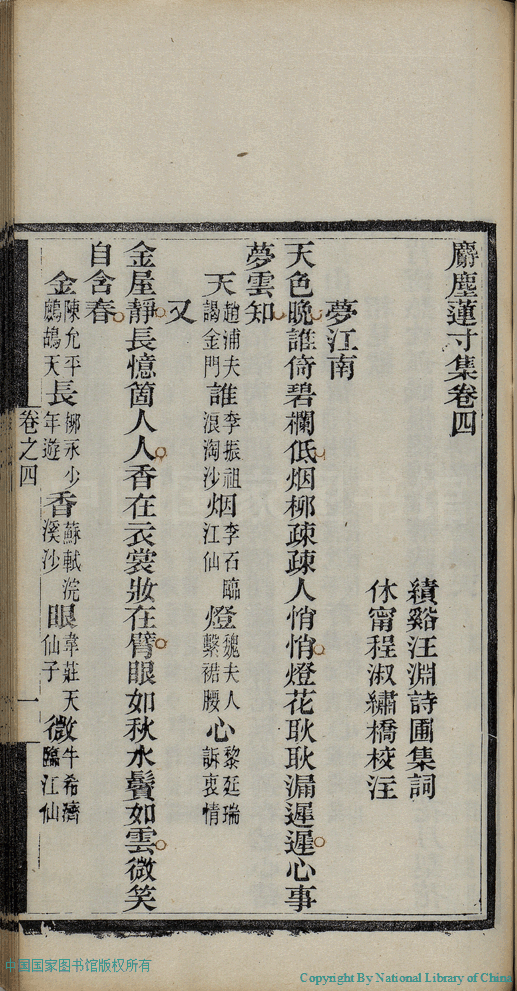 麝塵蓮寸集卷四
績谿汪淵詩圃集詞
休甯程淑繡橋校注
夢江南
天色晚誰倚碧欄低烟柳疎疎人悄悄燈花耿耿漏遲遲心事
夢雲知
天趙浦夫謁金門誰李振祖浪淘沙烟李石臨江仙燈魏夫人繫裙腰心黎廷瑞訴衷情
又
金屋靜長憶箇人人香在衣裳妝在臂眼如秋水鬢如雲微笑
自含春
金陳允平鷓鴣天長柳永少年遊香蘇軾浣溪沙眼韋莊天仙子微牛希濟臨江仙
卷之四
一
中国国家图书馆版权所有
Copyright By National Library of China